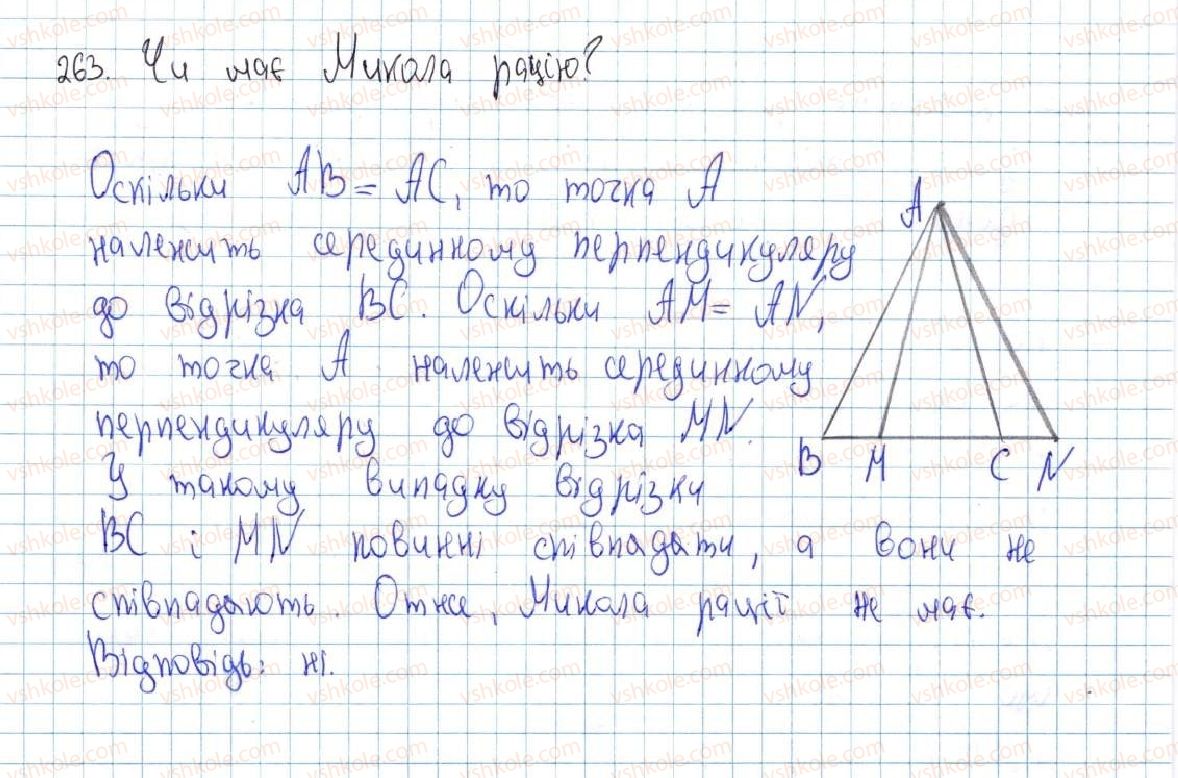 263. Чи має Микола рацію?
Оскільки AB = AC, то точка A
належить серединному перпендикуляру
до відрізка BC. Оскільки AM = AN,
то точка A належить серединному
перпендикуляру до відрізка MN.
У такому випадку відрізки
BC і MN повинні співпадати, а вони не
співпадають. Отже, Микола рації не має.
Відповідь: ні.
A
B M C N